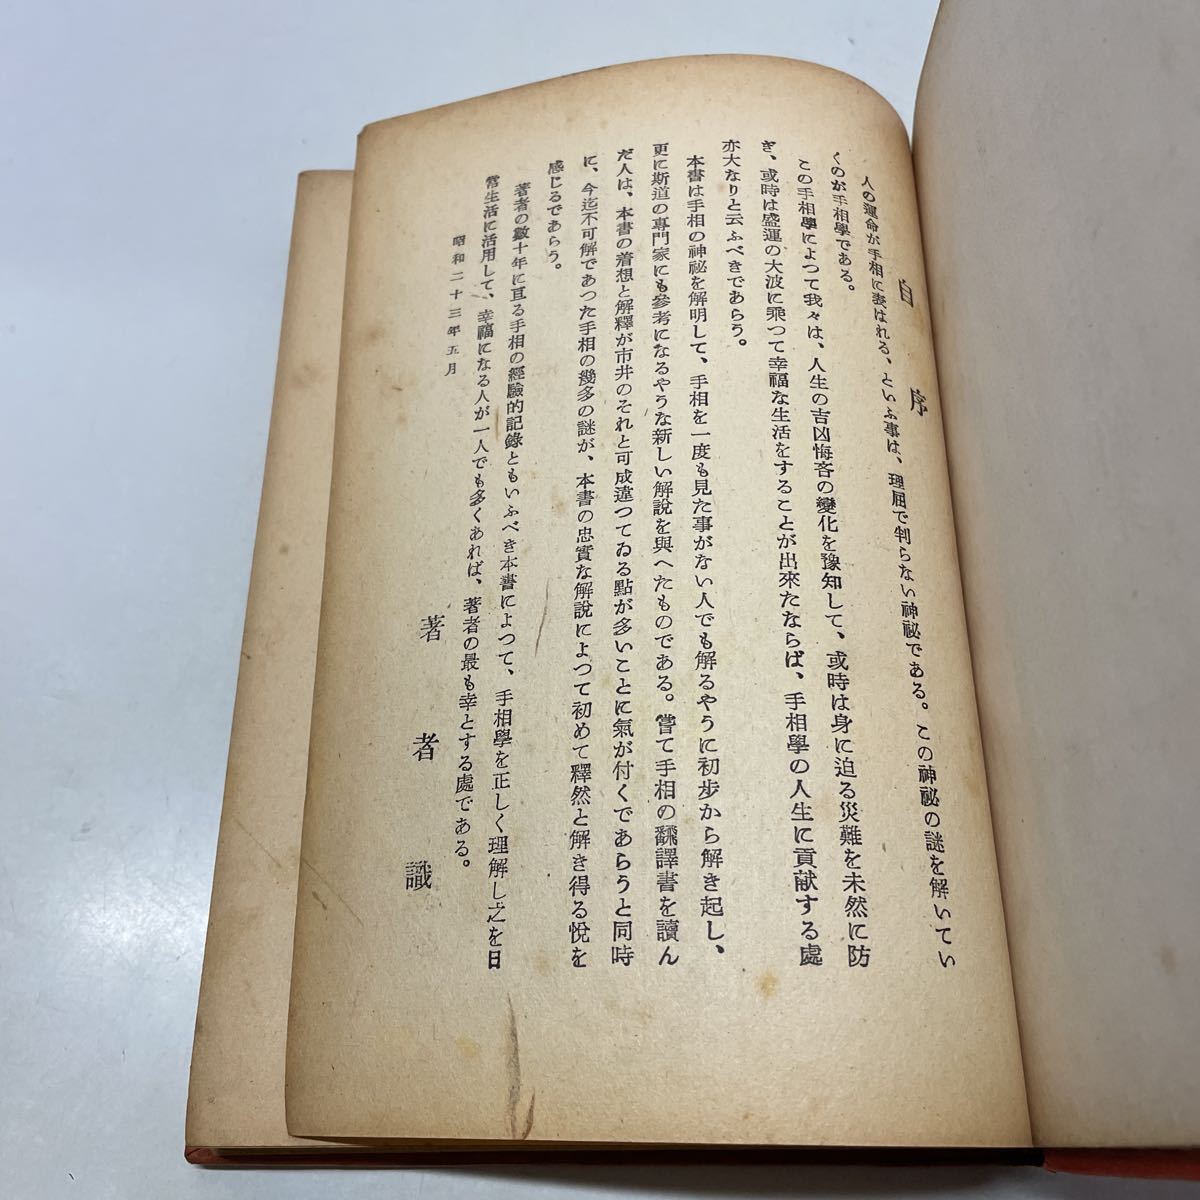 自序
人の運命が手相に表はれる、といふ事は、理屈で判らない神祕である。この神祕の謎を解いてい
くのが手相學である。
この手相學によつて我々は、人生の吉凶悔吝の變化を豫知して、或時は身に迫る災難を未然に防
ぎ、或時は盛運の大波に乘つて幸福な生活をすることが出來たならば、手相學の人生に貢献する處
亦大なりと云ふべきであらう。
本書は手相の神祕を解明して、手相を一度も見た事がない人でも解るやうに初步から解き起し、
更に斯道の專門家にも參考になるやうな新しい解說を與へたものである。嘗て手相の飜譯書を讀ん
だ人は、本書の着想と解釋が市井のそれと可成違つてゐる點が多いことに氣が付くであらうと同時
に、今迄不可解であつた手相の幾多の謎が、本書の忠實な解說によつて初めて釋然と解き得る悅を
感じるであらう。
著者の數十年に亘る手相の經驗的記錄ともいふべき本書によつて、手相學を正しく理解し之を日
常生活に活用して、幸福になる人が一人でも多くあれば、著者の最も幸とする處である。
昭和二十三年五月
著者識